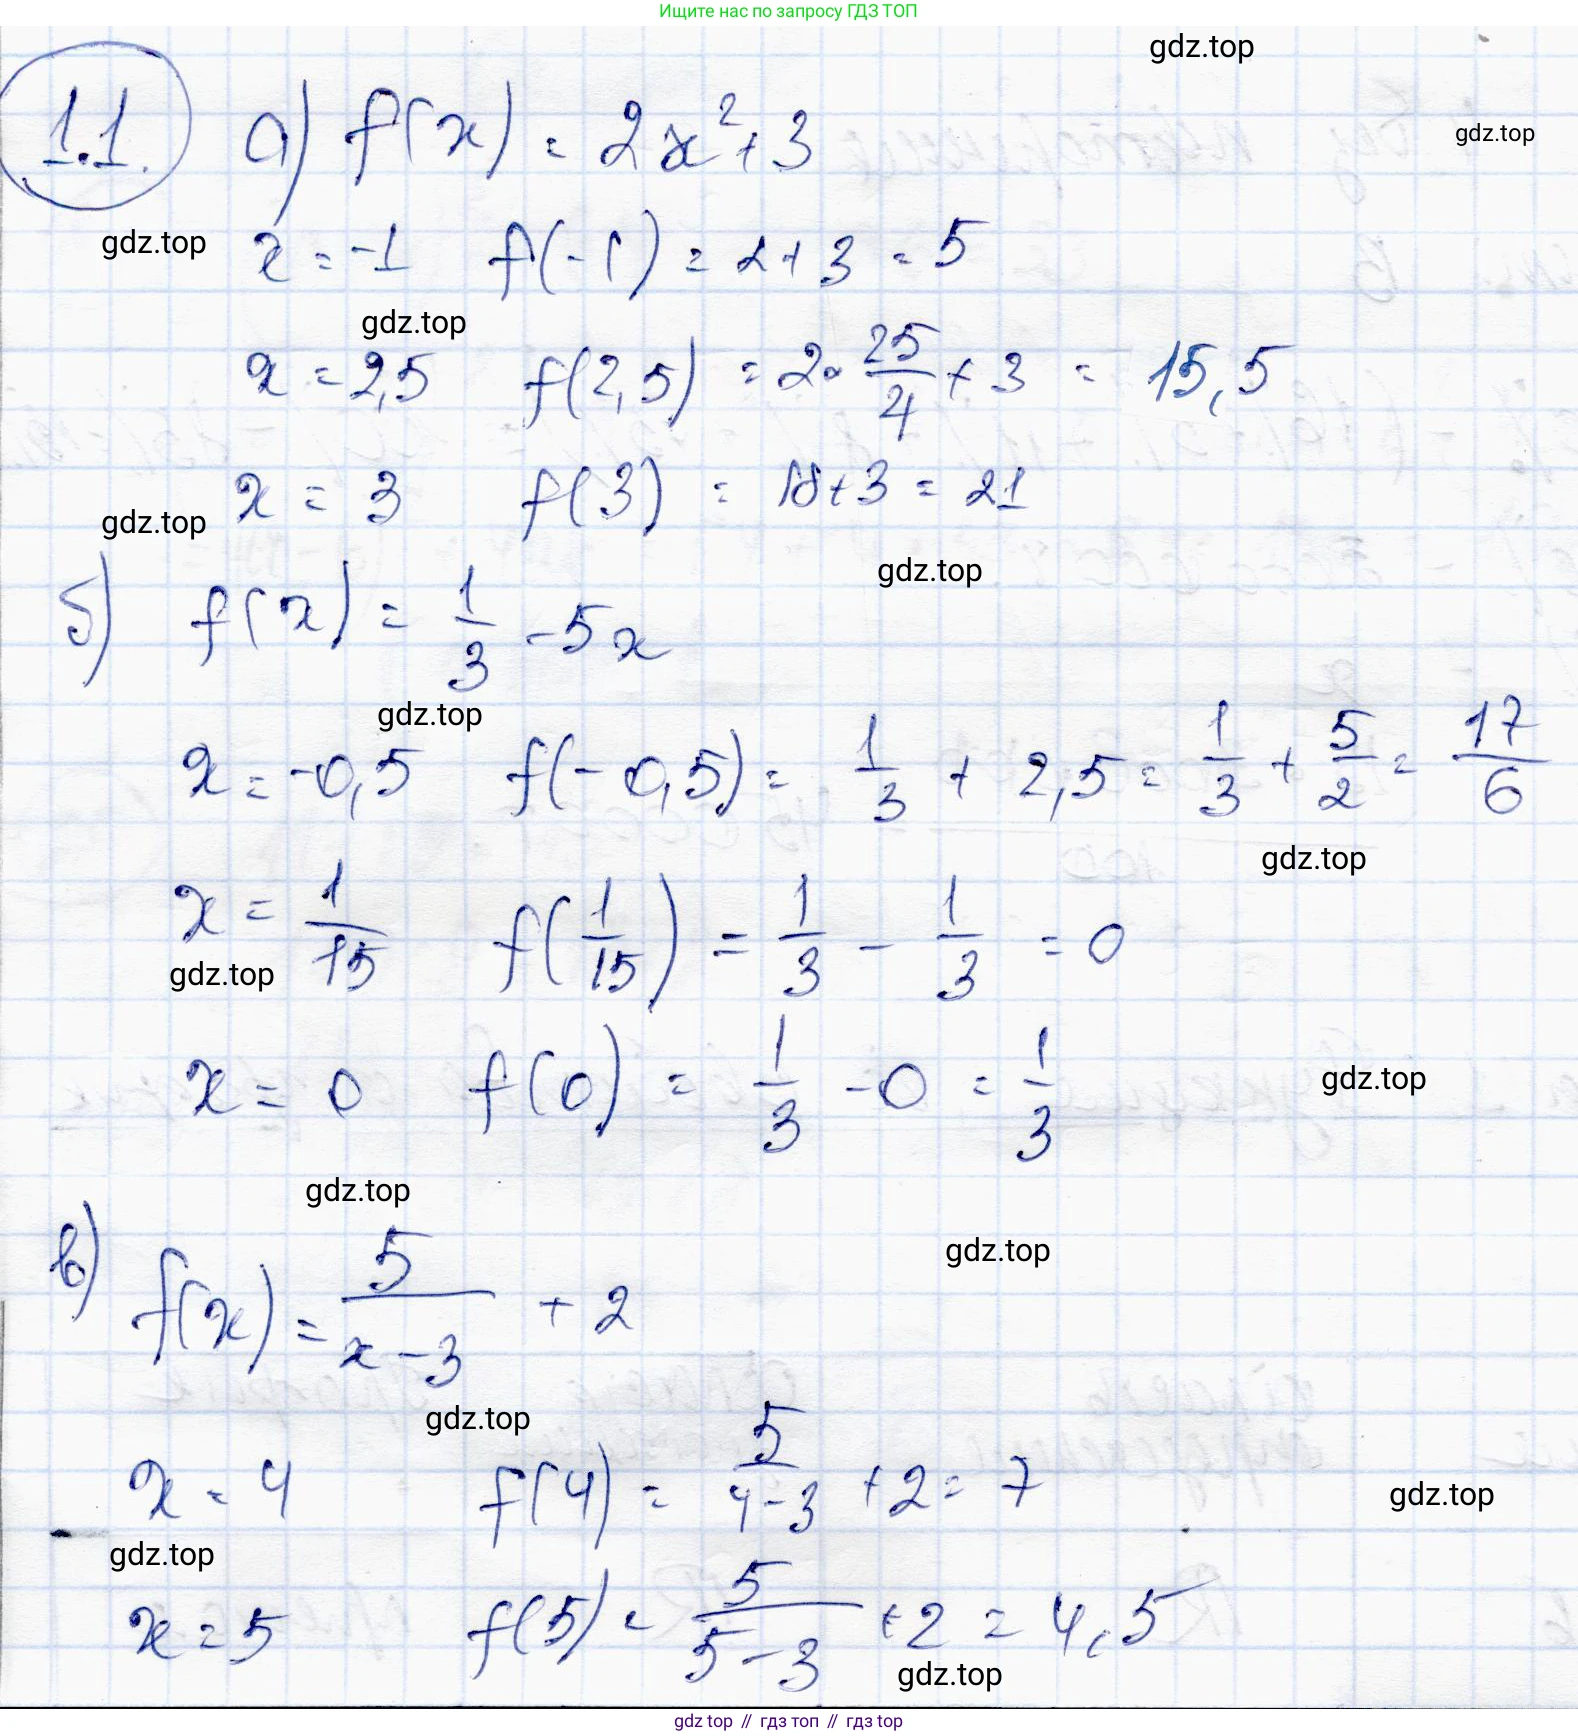 Ищите нас по запросу ГДЗ ТОП
gdz.top
1.1. а) f(x) = 2x² + 3
gdz.top
gdz.top
x = -1 f(-1) = 2 + 3 = 5
gdz.top
x = 2,5 f(2,5) = 2 · 25/4 + 3 = 15,5
x = 3 f(3) = 18 + 3 = 21
gdz.top
gdz.top
б) f(x) = 1/3 - 5x
gdz.top
x = -0,5 f(-0,5) = 1/3 + 2,5 = 1/3 + 5/2 = 17/6
gdz.top
x = 1/15 f(1/15) = 1/3 - 1/3 = 0
gdz.top
x = 0 f(0) = 1/3 - 0 = 1/3
gdz.top
gdz.top
gdz.top
в) f(x) = 5/(x - 3) + 2
gdz.top
x = 4 f(4) = 5/(4 - 3) + 2 = 7
gdz.top
gdz.top
x = 5 f(5) = 5/(5 - 3) + 2 = 4,5
gdz.top
gdz top // гдз топ // гдз top